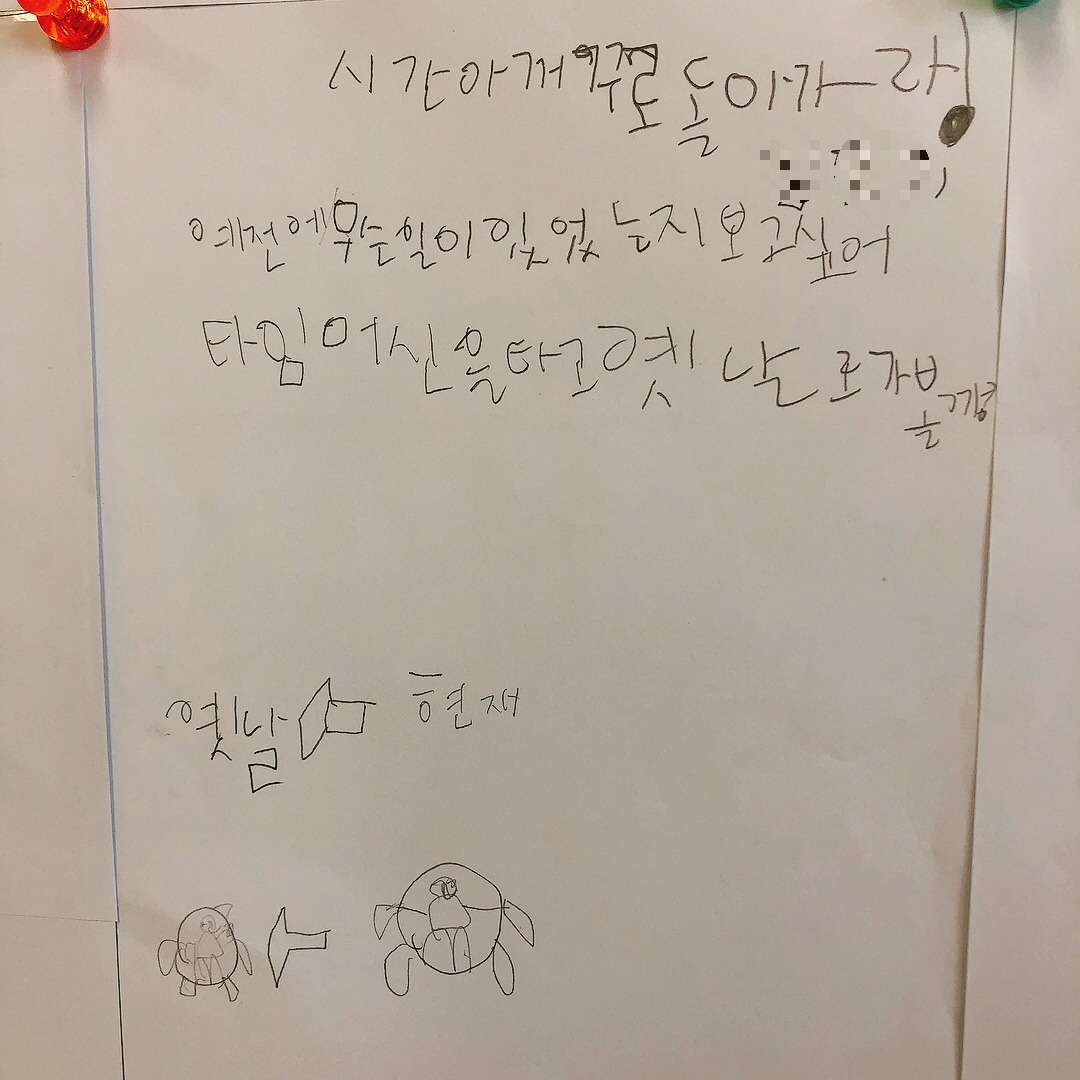 시간아 거꾸로 돌아가라!
예전에 무슨 일이 있었는지 보고싶어
타임머신을 타고 옛날로 가볼껑
옛날 현재